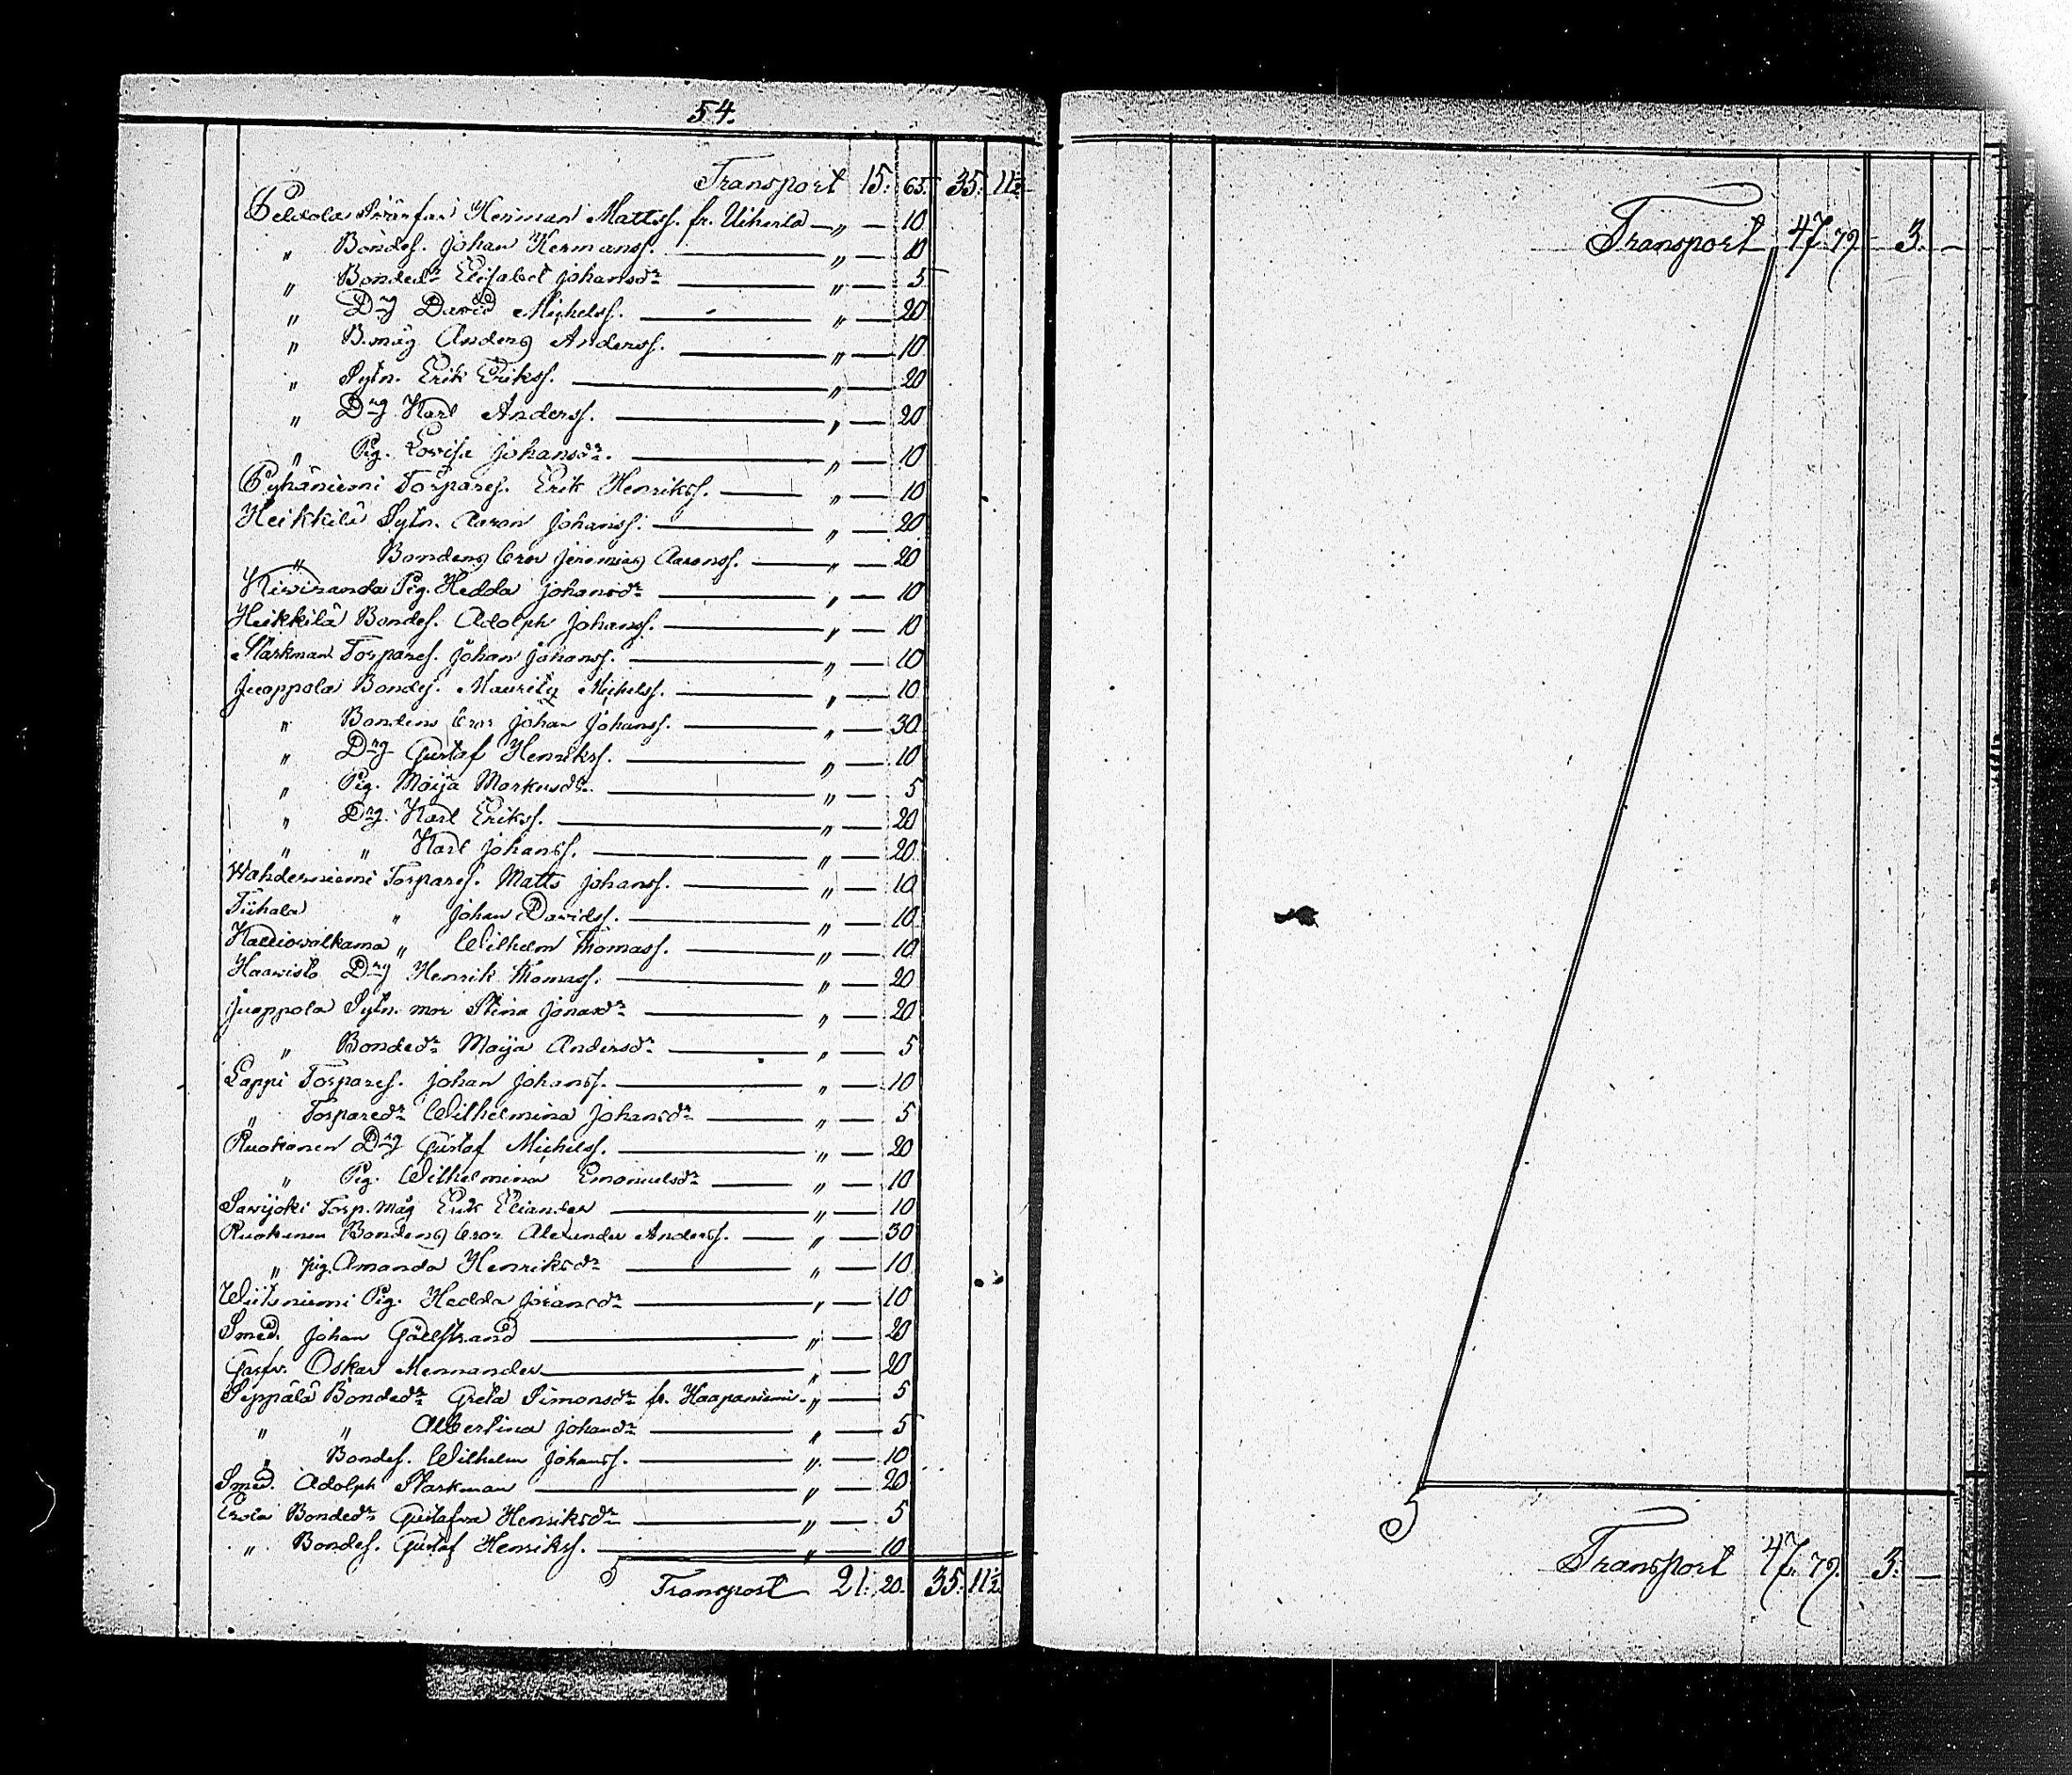 54.
Transport 15. 65. 35. 11½
Peldola Svärfar Herman Mattss. fr. Uiherla — „ — 10
„ Bondes. Johan Hermanss. — „ — 10
„ Bonded:r Elisabet Johansd:r — „ — 5
„ Dr:g David Michelss. — „ — 20
„ B.måg Anders Anderss. — „ — 10
„ Sytn. Erik Erikss. — „ — 20
„ Dr:g Karl Anderss. — „ — 20
„ Pig. Lovisa Johansd:r — „ — 10
Pyhäniemi Torpares. Erik Henrikss. — „ — 10
Heikkilä Sytn. Aaron Johanss. — „ — 20
„ Bondens bror Jeremias Aaronss. — „ — 20
Kiviranda Pig. Hedda Johansd:r — „ — 10
Heikkilä Bondes. Adolph Johanss. — „ — 10
Starkman Torpares. Johan Johanss. — „ — 10
Juoppola Bondes. Mauritz Michelss. — „ — 10
„ Bondens bror Johan Johanss. — „ — 30
„ Dr:g Gustaf Henrikss. — „ — 10
„ Pig. Maija Markusd:r — „ — 5
„ Dr:g Karl Erikss. — „ — 20
„ „ Karl Johanss. — „ — 20
Wahderniemi Torpares. Matts Johanss. — „ — 10
Tiihala „ Johan Davidss. — „ — 10
Kalliovalkama „ Wilhelm Thomass. — „ — 10
Haavisto Dr:g Henrik Thomass. — „ — 20
Juoppola Sytn. mor Stina Jonasd:r — „ — 20
„ Bonded:r Maija Andersd:r — „ — 5
Lappi Torpares. Johan Johanss. — „ — 10
„ Torpared:r Wilhelmina Johansd:r — „ — 5
Ruokonen Dr:g Gustaf Michelss. — „ — 20
„ Pig. Wilhelmina Emanuelsd:r — „ — 10
Savijoki Torp. måg Erik Eliander — „ — 10
Ruokonen Bondens bror Alexander Anderss. — „ — 30
„ pig. Amanda Henriksd:r — „ — 10
Wiitaniemi Pig. Hedda Göransd:r — „ — 10
Smed. Johan Gällstrand — „ — 20
Garfv. Oskar Mennander — „ — 20
Seppälä Bonded:r Greta Simonsd:r fr. Haapaniemi — „ — 5
„ „ Albertina Johansd:r — „ — 5
„ Bondes. Wilhelm Johanss. — „ — 10
Smed. Adolph Starkman — „ — 20
Erola Bonded:r Gustafva Henriksd:r — „ — 5
„ Bondes. Gustaf Henrikss. — „ — 10
Transport 21. 20. 35. 11½
Transport 47. 79. 3. —
Transport 47. 79. 3. —